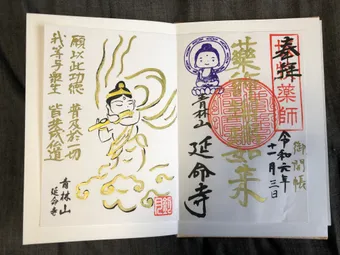 奉拝
薬師
御開帳
令和六年
十一月三日
薬師瑠璃光如来
青林山
延命寺
願以此功徳
普及於一切
我等与衆生
皆共成仏道
青林山
延命寺